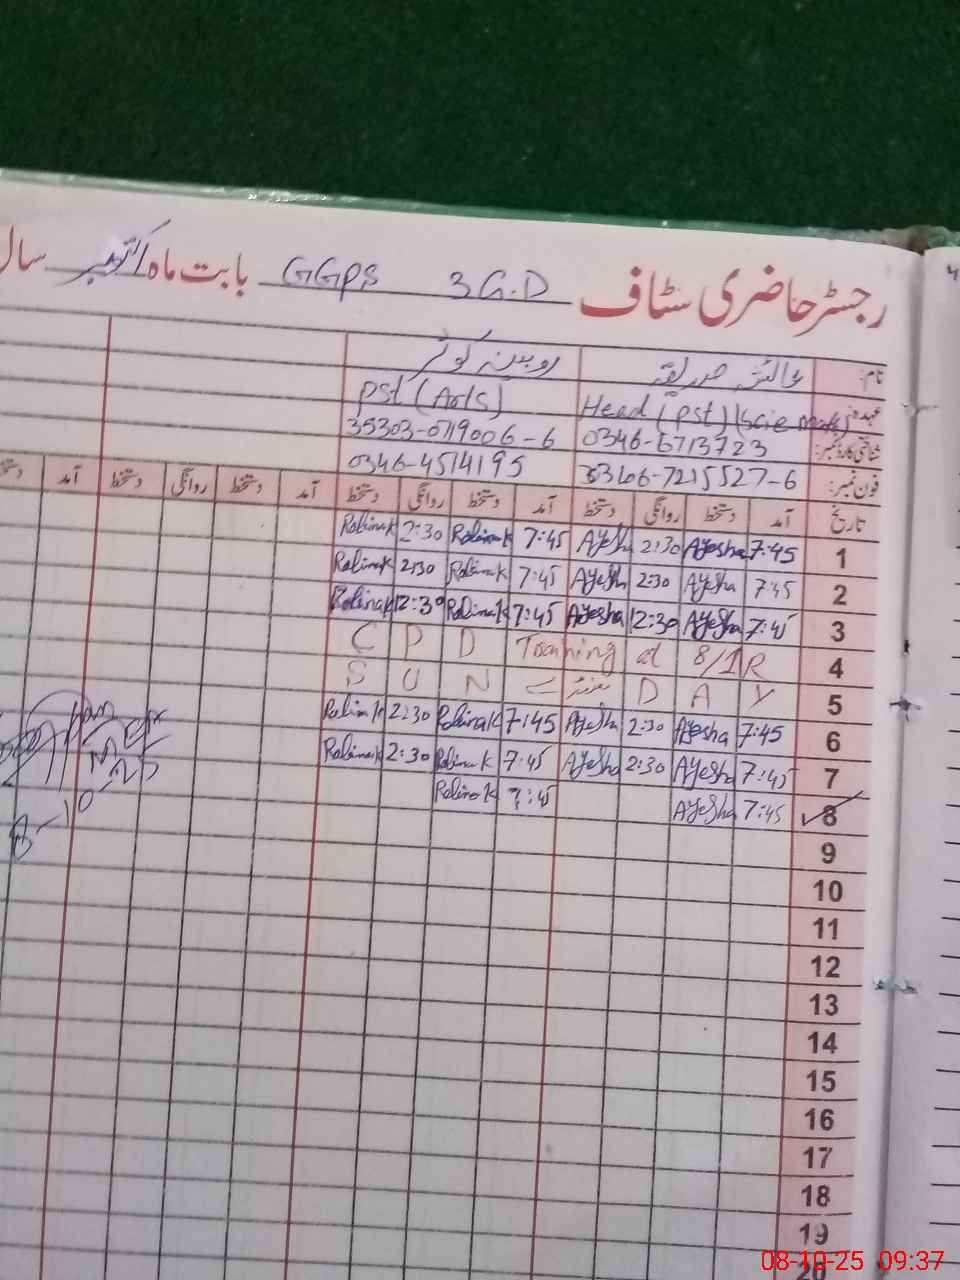 رجسٹر حاضری سٹاف GGPS 3 G.D بابت ماہ اکتوبر سال
نام: عائشہ صدیقہ روبینہ کوثر
عہدہ: Head (PST) (Scie Math) PST (Arts)
شناختی کارڈ نمبر: 0346-6713723 35303-0719006-6
فون نمبر: 33106-7215527-6 0346-4514195
تاریخ آمد دستخط روانگی دستخط آمد دستخط روانگی دستخط آمد دستخط روانگی دستخط آمد
1 7:45 Ayesha 2:30 Ayesha 7:45 Robina K 2:30 Robina K
2 7:45 Ayesha 2:30 Ayesha 7:45 Robina K 2:30 Robina K
3 7:45 Ayesha 12:30 Ayesha 7:45 Robina K 12:30 Robina K
4 CPD Training at 8/1R
5 SUN DAY
6 7:45 Ayesha 2:30 Ayesha 7:45 Robina K 2:30 Robina K
7 7:45 Ayesha 2:30 Ayesha 7:45 Robina K 2:30 Robina K
8 7:45 Ayesha 7:45 Robina K
9
10
11
12
13
14
15
16
17
18
19
20
08-10-25 09:37